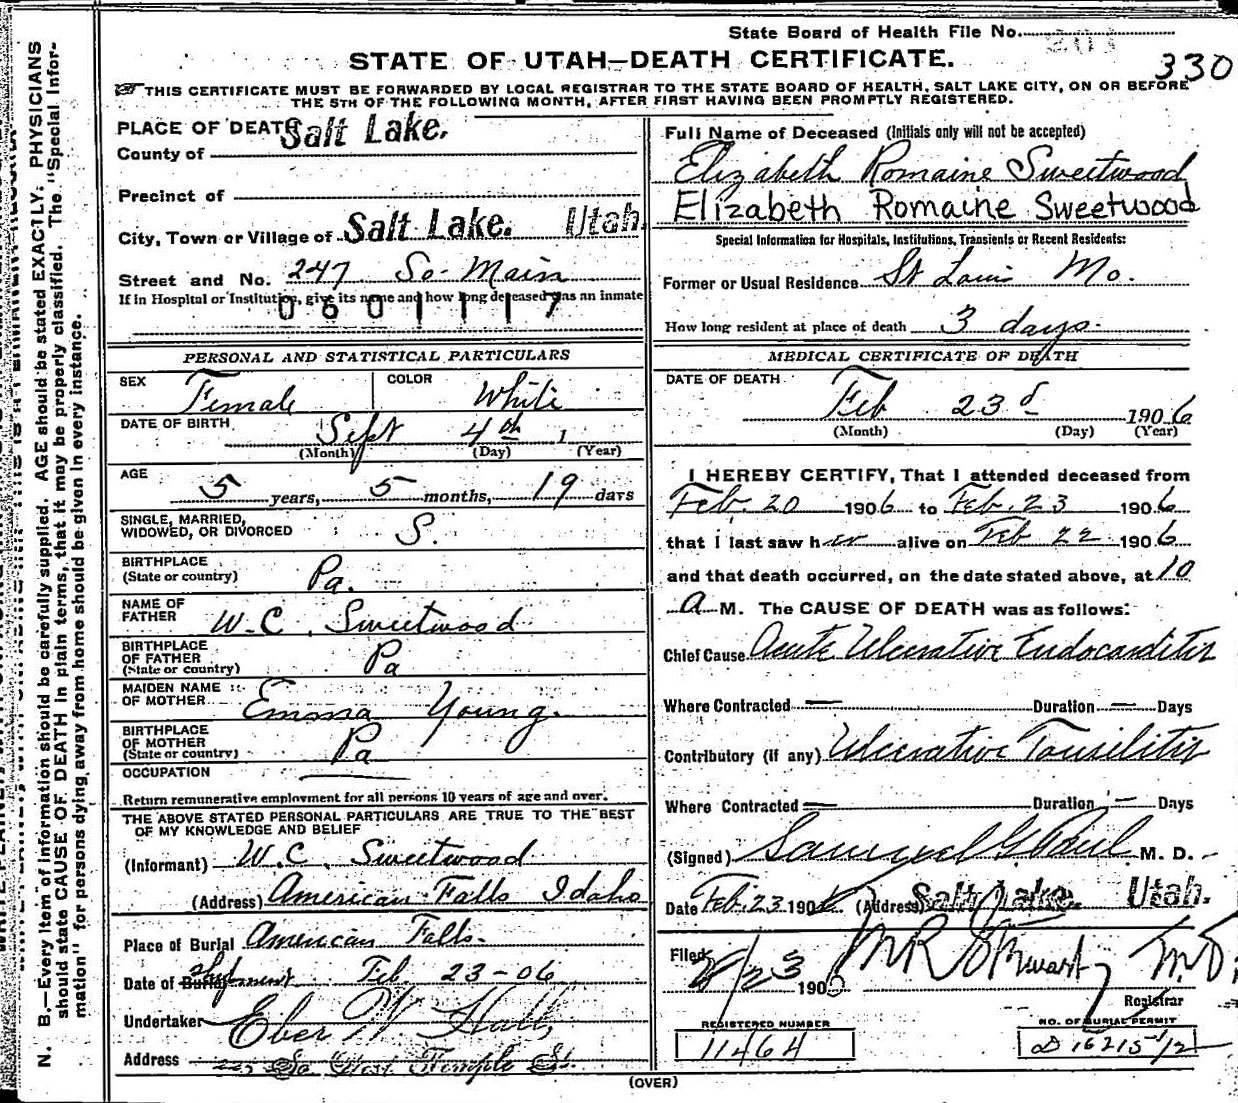 State Board of Health File No. 203
STATE OF UTAH—DEATH CERTIFICATE.
330
THIS CERTIFICATE MUST BE FORWARDED BY LOCAL REGISTRAR TO THE STATE BOARD OF HEALTH, SALT LAKE CITY, ON OR BEFORE
THE 5TH OF THE FOLLOWING MONTH, AFTER FIRST HAVING BEEN PROMPTLY REGISTERED.
N. B.—Every item of information should be carefully supplied. AGE should be stated EXACTLY. PHYSICIANS
should state CAUSE OF DEATH in plain terms, that it may be properly classified. The "Special Infor-
mation" for persons dying away from home should be given in every instance.
PLACE OF DEATH
County of Salt Lake.
Precinct of
City, Town or Village of Salt Lake. Utah.
Street and No. 247 So. Main
If in Hospital or Institution, give its name and how long deceased was an inmate
0601117
PERSONAL AND STATISTICAL PARTICULARS
SEX Female COLOR White
DATE OF BIRTH Sept 4th 1
(Month) (Day) (Year)
AGE 5 years, 5 months, 19 days
SINGLE, MARRIED,
WIDOWED, OR DIVORCED S.
BIRTHPLACE
(State or country) Pa.
NAME OF
FATHER W. C. Sweetwood
BIRTHPLACE
OF FATHER
(State or country) Pa
MAIDEN NAME
OF MOTHER Emma Young.
BIRTHPLACE
OF MOTHER
(State or country) Pa
OCCUPATION
Return remunerative employment for all persons 10 years of age and over.
THE ABOVE STATED PERSONAL PARTICULARS ARE TRUE TO THE BEST
OF MY KNOWLEDGE AND BELIEF
(Informant) W. C. Sweetwood
(Address) American Falls Idaho
Place of Burial American Falls.
Date of Burial Shipment Feb 23-06
Undertaker Eber W Hall
Address 225 So West Temple St.
Full Name of Deceased (Initials only will not be accepted)
Elizabeth Romaine Sweetwood
Elizabeth Romaine Sweetwood
Special Information for Hospitals, Institutions, Transients or Recent Residents:
Former or Usual Residence St Louis Mo.
How long resident at place of death 3 days.
MEDICAL CERTIFICATE OF DEATH
DATE OF DEATH
Feb 23d 1906
(Month) (Day) (Year)
I HEREBY CERTIFY, That I attended deceased from
Feb. 20 1906 to Feb. 23 1906
that I last saw her alive on Feb 22 1906
and that death occurred, on the date stated above, at 10
a M. The CAUSE OF DEATH was as follows:
Chief Cause Acute Ulcerative Endocarditis
Where Contracted — Duration — Days
Contributory (if any) Ulcerative Tonsilitis
Where Contracted — Duration — Days
(Signed) Samuel G. Paul M. D.
Date Feb. 23 190 (Address) Salt Lake. Utah.
Filed 2/23 1906 M R Stewart M.D.
Registrar
REGISTERED NUMBER
11464
NO. OF BURIAL PERMIT
D 16215 1/2
(OVER)